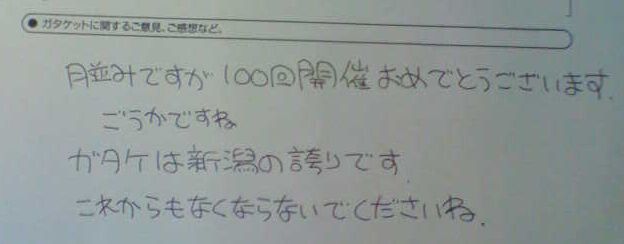 ● ガタケットに関するご意見、ご感想など。
月並みですが100回開催おめでとうございます.
ごうかですね
ガタケは新潟の誇りです.
これからもなくならないでくださいね.